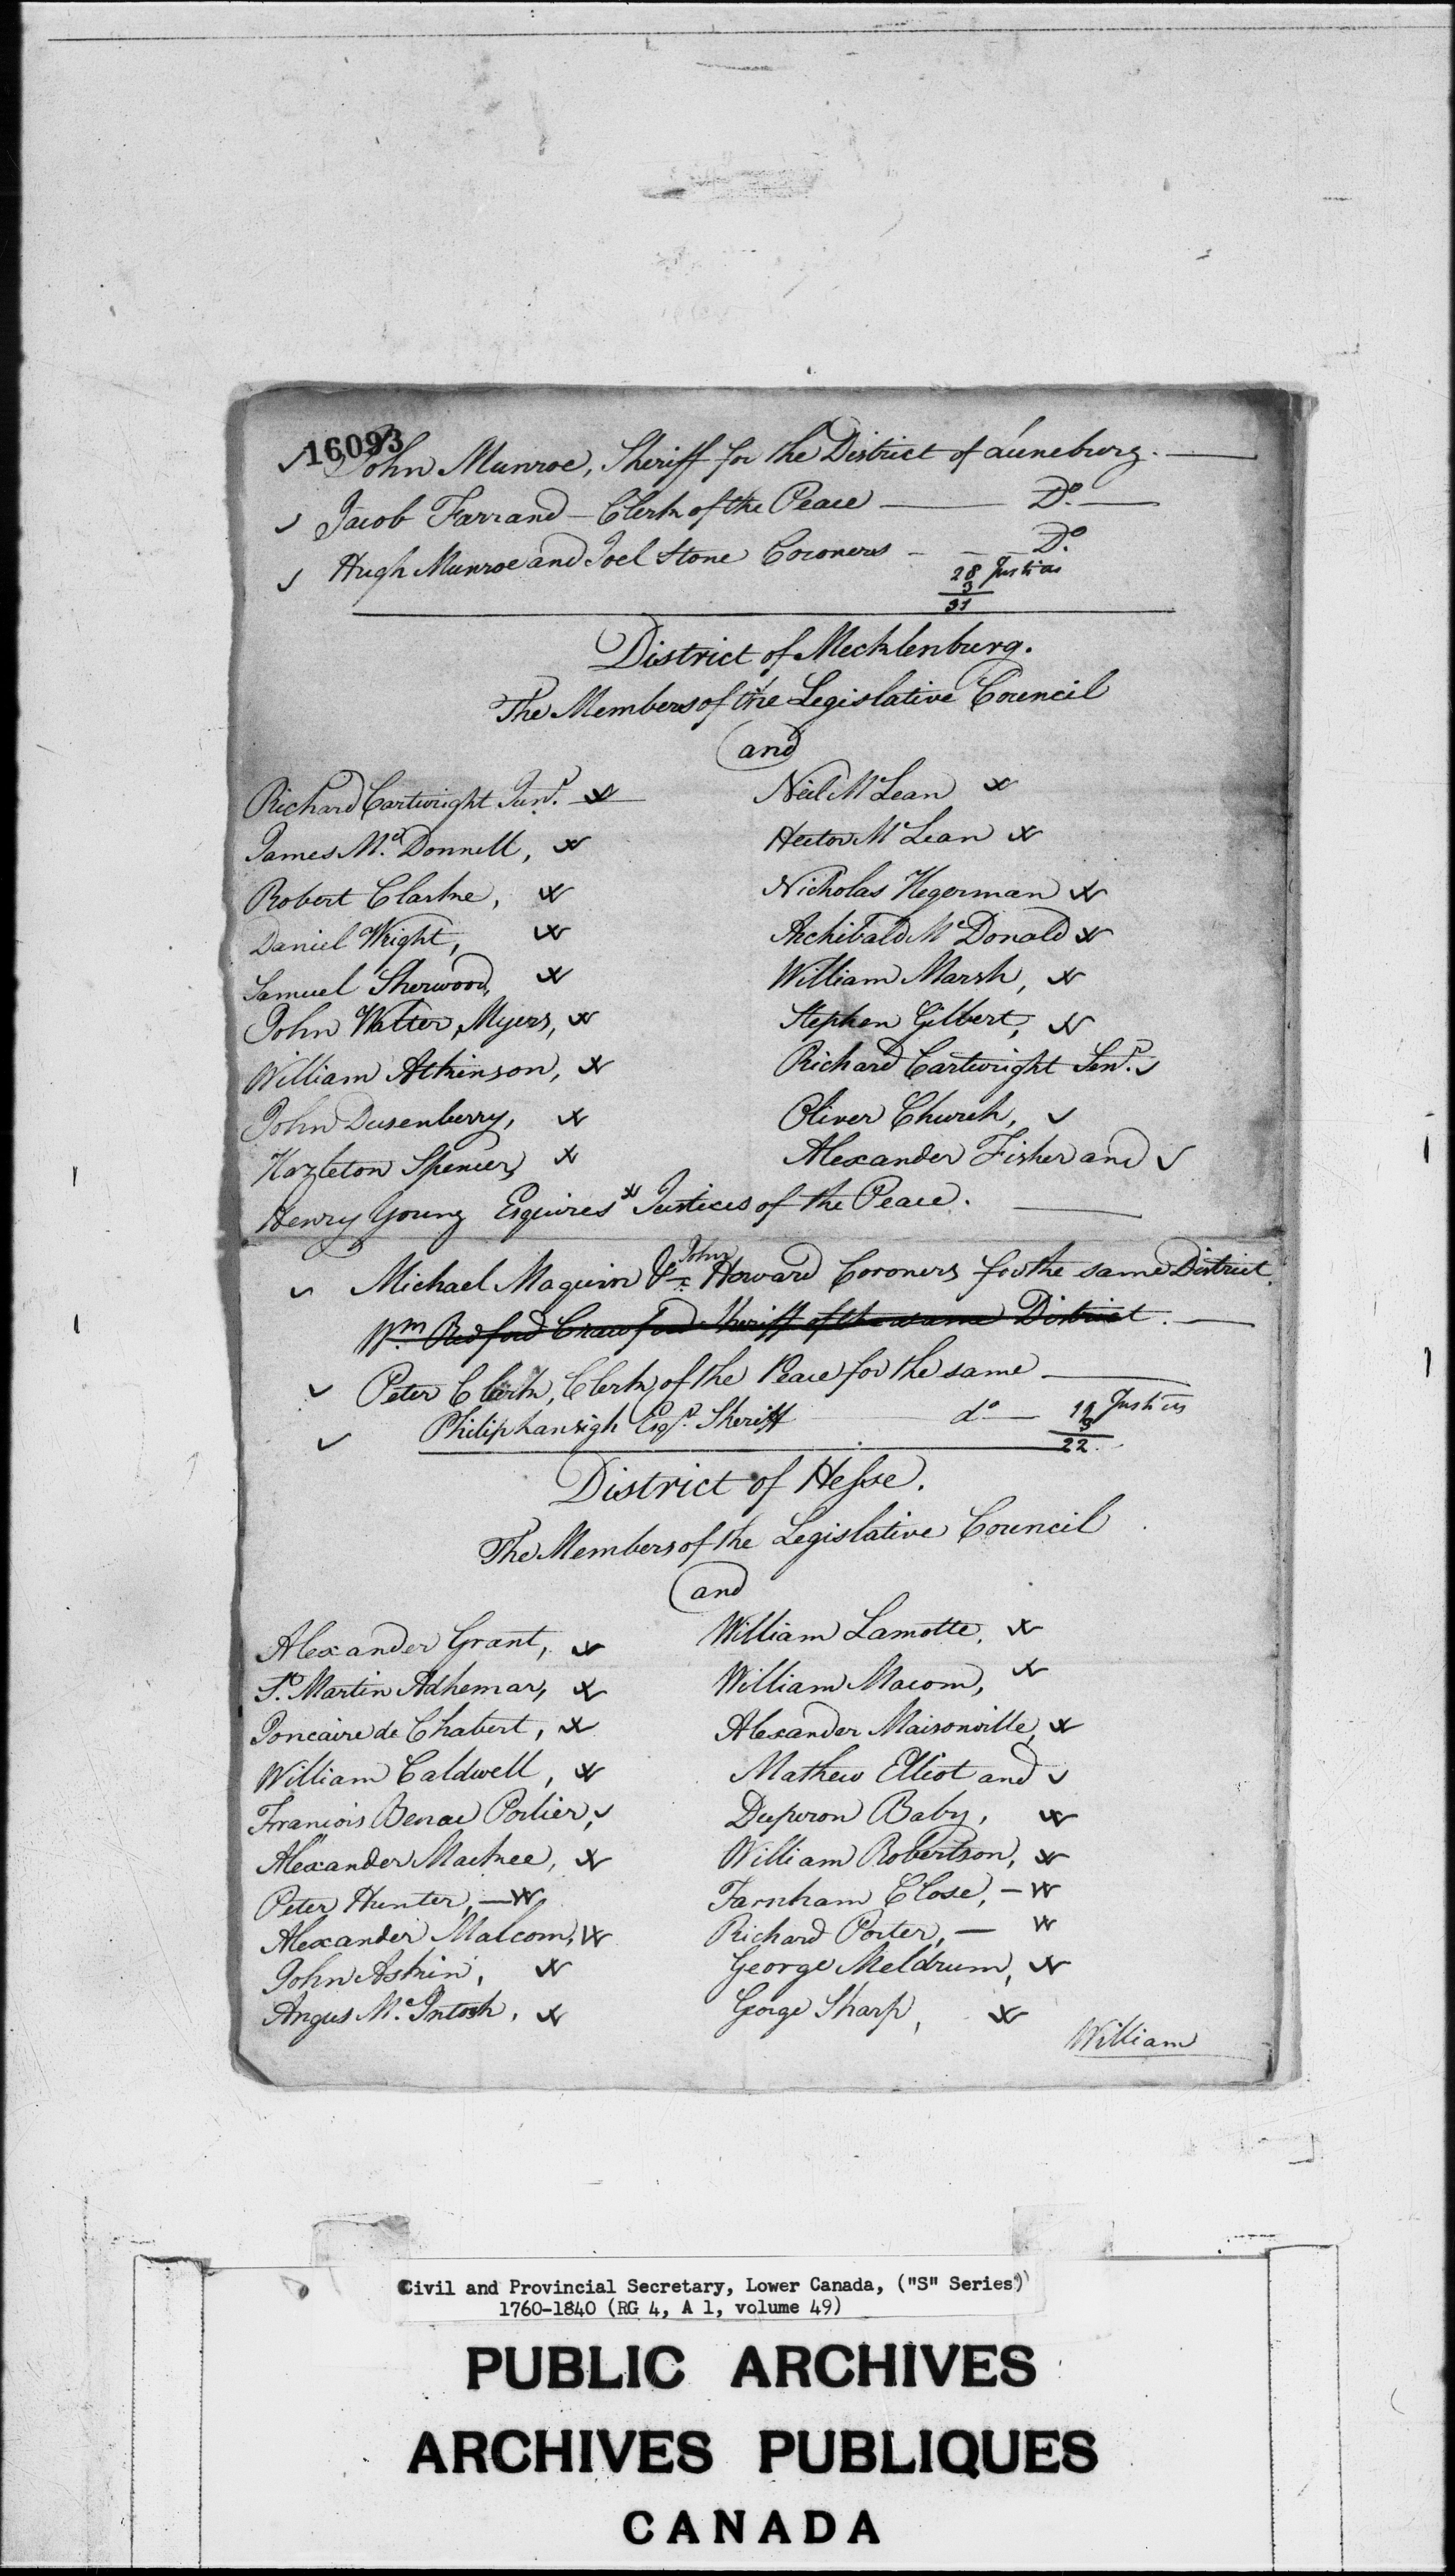 16093
John Munroe, Sheriff for the District of Luneburg.
Jacob Farrand - Clerk of the Peace Do.
Hugh Munroe and Joel Stone Coroners Do.
28 Justices
3
31
District of Mecklenburg.
The Members of the Legislative Council
and
Richard Cartwright Junr.
James McDonnell,
Robert Clarke,
Daniel Wright,
Samuel Sherwood,
John Walter Myers,
William Atkinson,
John Dusenberry,
Hazleton Spencer,
Neil McLean
Hector McLean
Nicholas Hegerman
Archibald McDonald
William Marsh,
Stephen Gilbert,
Richard Cartwright Senr.
Oliver Church,
Alexander Fisher and
Henry Young Esquires Justices of the Peace.
Michael Maguin & John Howard Coroners for the same District.
Wm. Redford Crawford Sheriff of the same District.
Peter Clark, Clerk of the Peace for the same
Philip Lansigh Esqr. Sheriff do
19 Justices
3
22.
District of Hesse.
The Members of the Legislative Council
and
Alexander Grant,
St. Martin Adhemar,
Joncaire de Chabert,
William Caldwell,
Francois Benac Portier,
Alexander Mackee,
Peter Hunter,
Alexander Malcom,
John Askin,
Angus McIntosh,
William Lamotte,
William Macom,
Alexander Maisonville,
Mathew Elliot and
Duperon Baby,
William Robertson,
Farnham Close,
Richard Porter,
George Meldrum,
George Sharp,
William
Civil and Provincial Secretary, Lower Canada, ("S" Series)
1760-1840 (RG 4, A 1, volume 49)
PUBLIC ARCHIVES
ARCHIVES PUBLIQUES
CANADA